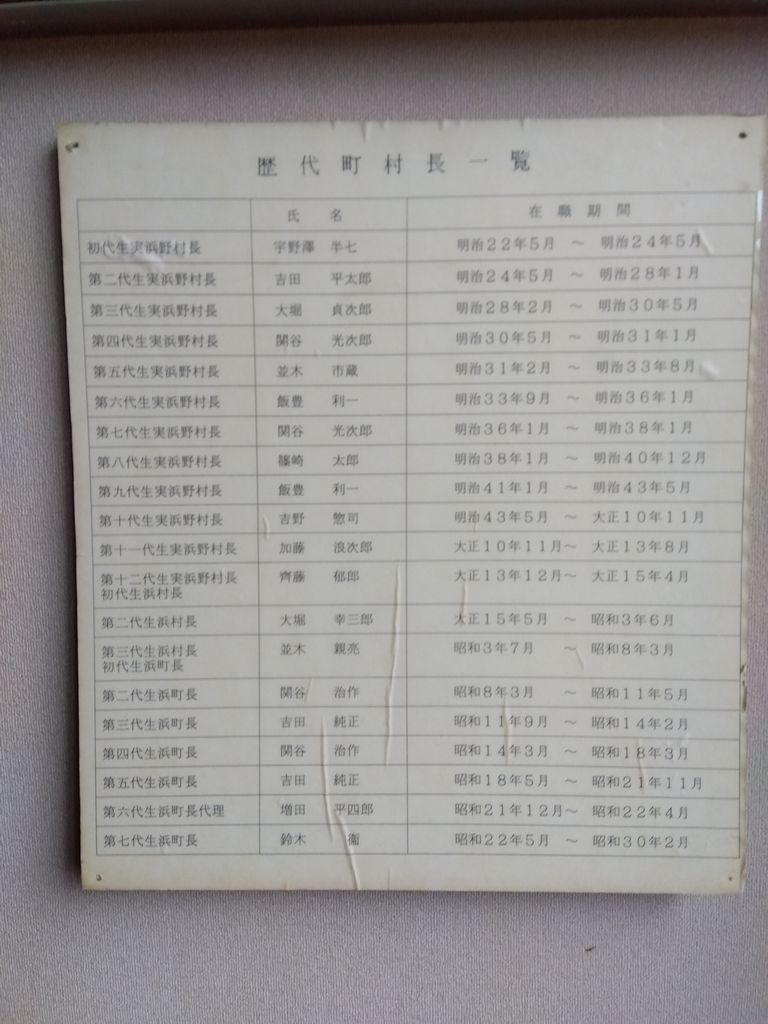 歴代町村長一覧
氏名 在職期間
初代生実浜野村長 宇野澤 半七 明治22年5月 ～ 明治24年5月
第二代生実浜野村長 吉田 平太郎 明治24年5月 ～ 明治28年1月
第三代生実浜野村長 大堀 貞次郎 明治28年2月 ～ 明治30年5月
第四代生実浜野村長 関谷 光次郎 明治30年5月 ～ 明治31年1月
第五代生実浜野村長 並木 市蔵 明治31年2月 ～ 明治33年8月
第六代生実浜野村長 飯豊 利一 明治33年9月 ～ 明治36年1月
第七代生実浜野村長 関谷 光次郎 明治36年1月 ～ 明治38年1月
第八代生実浜野村長 篠崎 太郎 明治38年1月 ～ 明治40年12月
第九代生実浜野村長 飯豊 利一 明治41年1月 ～ 明治43年5月
第十代生実浜野村長 吉野 惣司 明治43年5月 ～ 大正10年11月
第十一代生実浜野村長 加藤 浪次郎 大正10年11月～ 大正13年8月
第十二代生実浜野村長 齊藤 郁郎 大正13年12月～ 大正15年4月
初代生浜村長
第二代生浜村長 大堀 幸三郎 大正15年5月 ～ 昭和3年6月
第三代生浜村長 並木 親亮 昭和3年7月 ～ 昭和8年3月
初代生浜町長
第二代生浜町長 関谷 治作 昭和8年3月 ～ 昭和11年5月
第三代生浜町長 吉田 純正 昭和11年9月 ～ 昭和14年2月
第四代生浜町長 関谷 治作 昭和14年3月 ～ 昭和18年3月
第五代生浜町長 吉田 純正 昭和18年5月 ～ 昭和21年11月
第六代生浜町長代理 増田 平四郎 昭和21年12月～ 昭和22年4月
第七代生浜町長 鈴木 衞 昭和22年5月 ～ 昭和30年2月